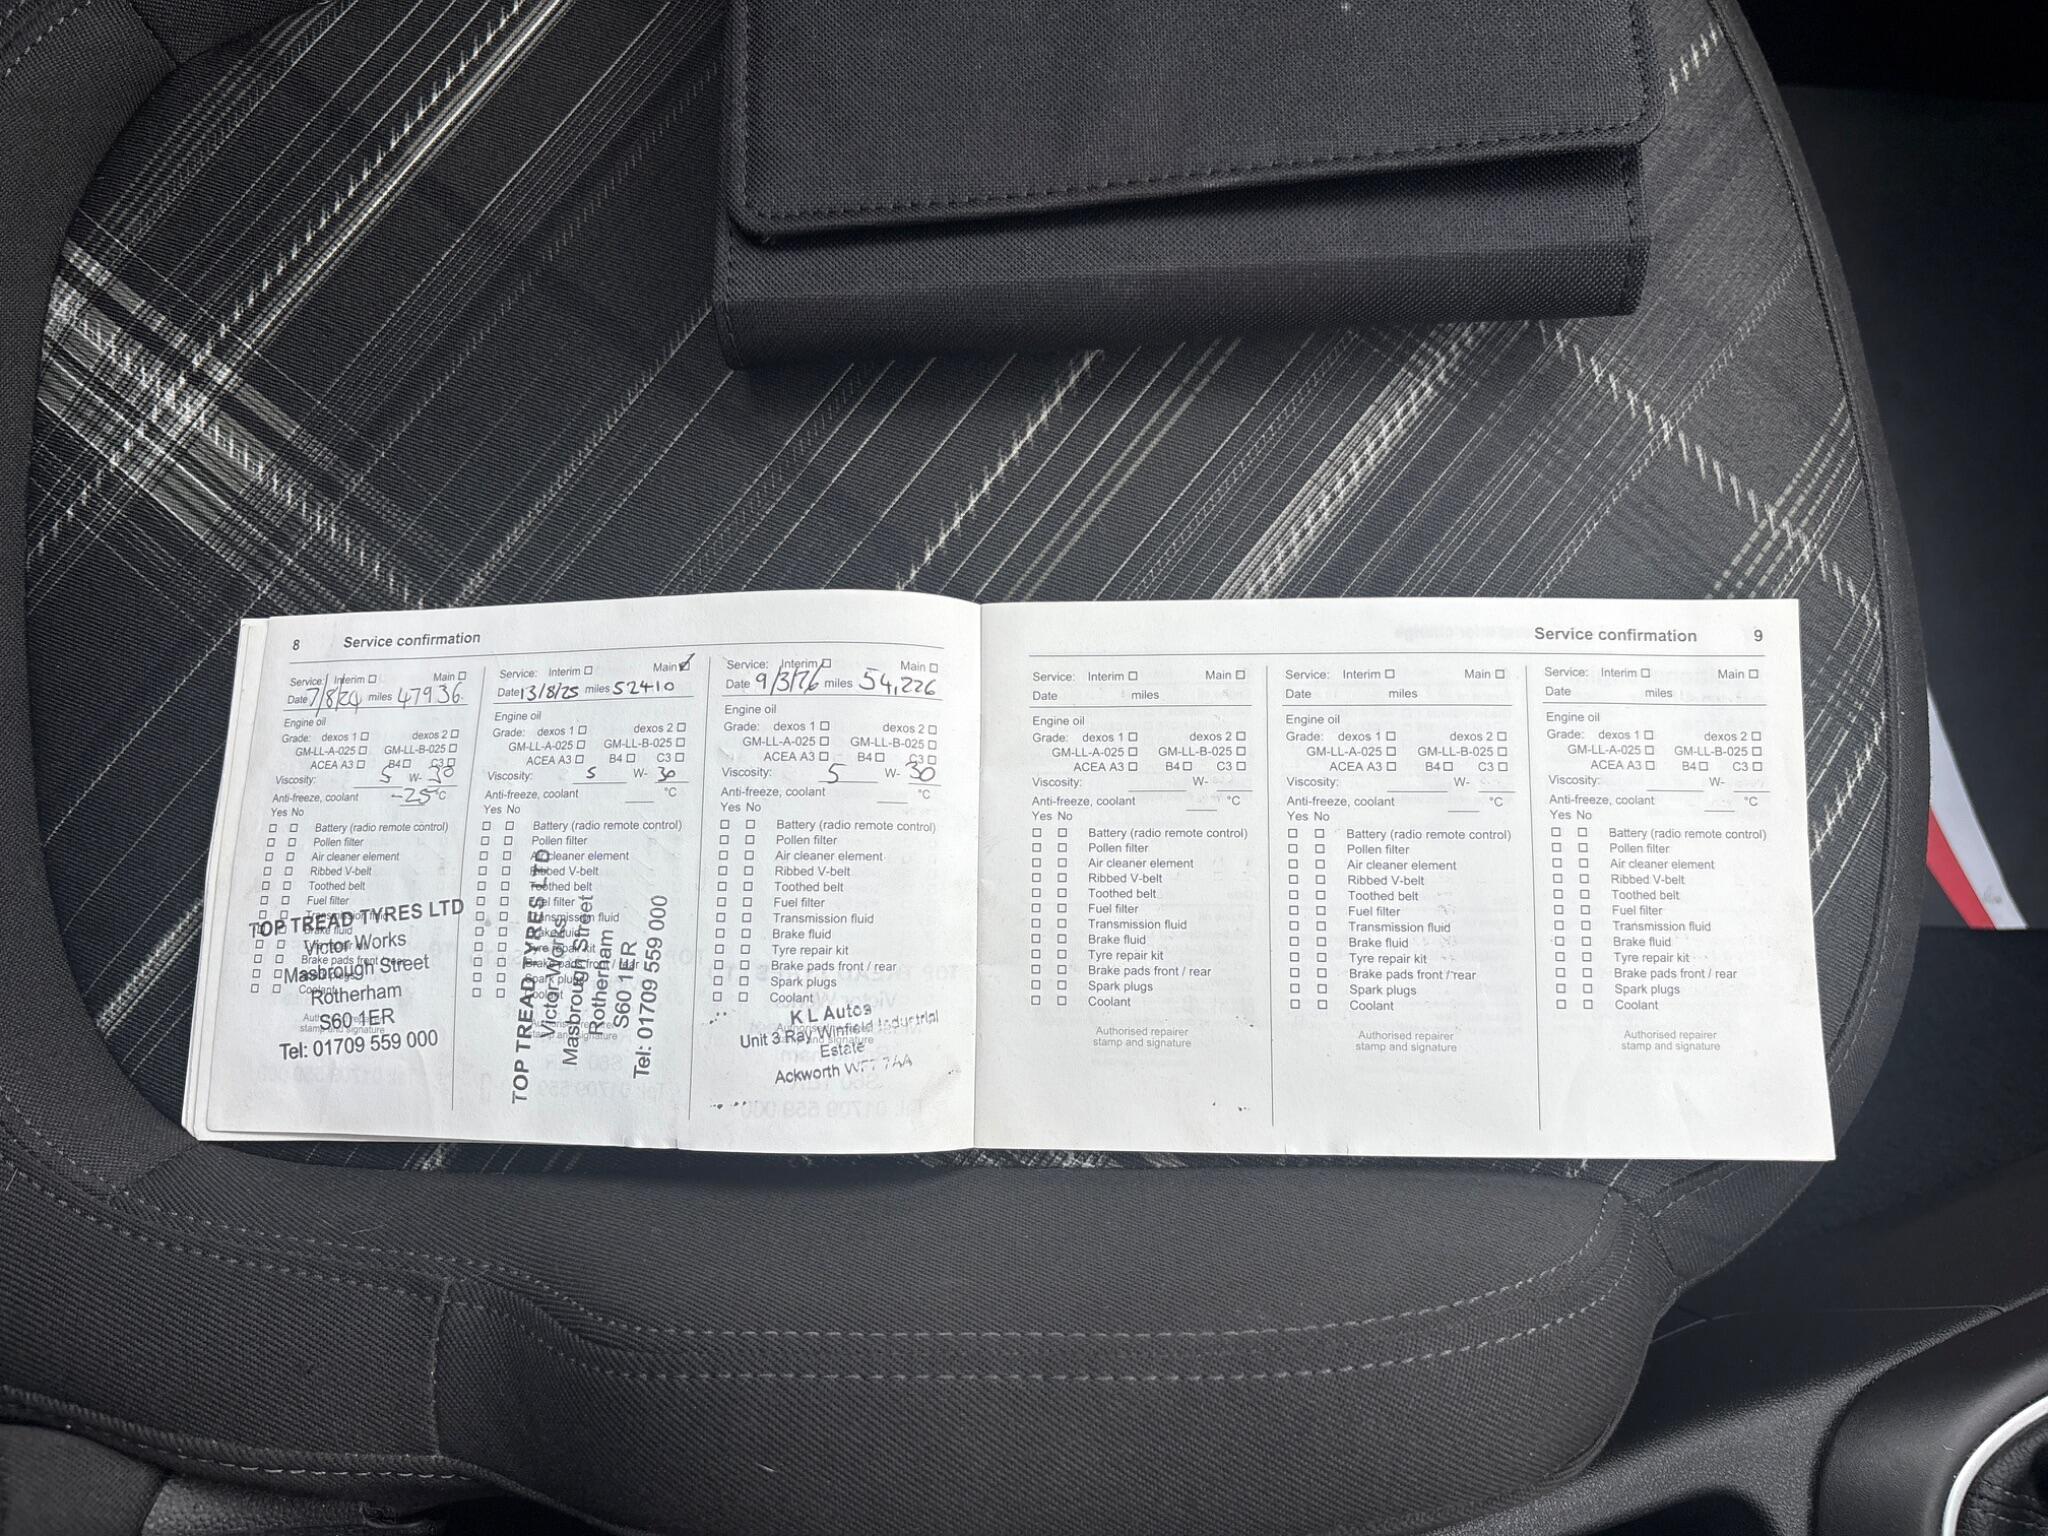 8 Service confirmation
Service: Interim ☐ Main ☐
Date 7/8/24 miles 47936
Engine oil
Grade: dexos 1 ☐ dexos 2 ☐
GM-LL-A-025 ☐ GM-LL-B-025 ☐
ACEA A3 ☐ B4 ☐ C3 ☐
Viscosity: 5 W- 30
Anti-freeze, coolant -25 °C
Yes No
☐ ☐ Battery (radio remote control)
☐ ☐ Pollen filter
☐ ☐ Air cleaner element
☐ ☐ Ribbed V-belt
☐ ☐ Toothed belt
☐ ☐ Fuel filter
☐ ☐ Transmission fluid
☐ ☐ Brake fluid
☐ ☐ Brake pads front / rear
☐ ☐ Coolant
Authorised repairer
stamp and signature
TOP TREAD TYRES LTD
Victor Works
Masbrough Street
Rotherham
S60 1ER
Tel: 01709 559 000
Service: Interim ☐ Main ☑
Date 13/8/25 miles 52410
Engine oil
Grade: dexos 1 ☐ dexos 2 ☐
GM-LL-A-025 ☐ GM-LL-B-025 ☐
ACEA A3 ☐ B4 ☐ C3 ☐
Viscosity: 5 W- 30
Anti-freeze, coolant °C
Yes No
☐ ☐ Battery (radio remote control)
☐ ☐ Pollen filter
☐ ☐ Air cleaner element
☐ ☐ Ribbed V-belt
☐ ☐ Toothed belt
☐ ☐ Fuel filter
☐ ☐ Transmission fluid
☐ ☐ Brake fluid
☐ ☐ Tyre repair kit
☐ ☐ Brake pads front / rear
☐ ☐ Spark plugs
☐ ☐ Coolant
Authorised repairer
stamp and signature
TOP TREAD TYRES LTD
Victor Works
Masbrough Street
Rotherham
S60 1ER
Tel: 01709 559 000
Service: Interim ☐ Main ☐
Date 9/3/26 miles 54,226
Engine oil
Grade: dexos 1 ☐ dexos 2 ☐
GM-LL-A-025 ☐ GM-LL-B-025 ☐
ACEA A3 ☐ B4 ☐ C3 ☐
Viscosity: 5 W- 30
Anti-freeze, coolant °C
Yes No
☐ ☐ Battery (radio remote control)
☐ ☐ Pollen filter
☐ ☐ Air cleaner element
☐ ☐ Ribbed V-belt
☐ ☐ Toothed belt
☐ ☐ Fuel filter
☐ ☐ Transmission fluid
☐ ☐ Brake fluid
☐ ☐ Tyre repair kit
☐ ☐ Brake pads front / rear
☐ ☐ Spark plugs
☐ ☐ Coolant
Authorised repairer
stamp and signature
K L Autos
Unit 3 Ray Winfield Industrial
Estate
Ackworth
Service confirmation 9
Service: Interim ☐ Main ☐
Date miles
Engine oil
Grade: dexos 1 ☐ dexos 2 ☐
GM-LL-A-025 ☐ GM-LL-B-025 ☐
ACEA A3 ☐ B4 ☐ C3 ☐
Viscosity: W-
Anti-freeze, coolant °C
Yes No
☐ ☐ Battery (radio remote control)
☐ ☐ Pollen filter
☐ ☐ Air cleaner element
☐ ☐ Ribbed V-belt
☐ ☐ Toothed belt
☐ ☐ Fuel filter
☐ ☐ Transmission fluid
☐ ☐ Brake fluid
☐ ☐ Tyre repair kit
☐ ☐ Brake pads front / rear
☐ ☐ Spark plugs
☐ ☐ Coolant
Authorised repairer
stamp and signature
Service: Interim ☐ Main ☐
Date miles
Engine oil
Grade: dexos 1 ☐ dexos 2 ☐
GM-LL-A-025 ☐ GM-LL-B-025 ☐
ACEA A3 ☐ B4 ☐ C3 ☐
Viscosity: W-
Anti-freeze, coolant °C
Yes No
☐ ☐ Battery (radio remote control)
☐ ☐ Pollen filter
☐ ☐ Air cleaner element
☐ ☐ Ribbed V-belt
☐ ☐ Toothed belt
☐ ☐ Fuel filter
☐ ☐ Transmission fluid
☐ ☐ Brake fluid
☐ ☐ Tyre repair kit
☐ ☐ Brake pads front / rear
☐ ☐ Spark plugs
☐ ☐ Coolant
Authorised repairer
stamp and signature
Service: Interim ☐ Main ☐
Date miles
Engine oil
Grade: dexos 1 ☐ dexos 2 ☐
GM-LL-A-025 ☐ GM-LL-B-025 ☐
ACEA A3 ☐ B4 ☐ C3 ☐
Viscosity: W-
Anti-freeze, coolant °C
Yes No
☐ ☐ Battery (radio remote control)
☐ ☐ Pollen filter
☐ ☐ Air cleaner element
☐ ☐ Ribbed V-belt
☐ ☐ Toothed belt
☐ ☐ Fuel filter
☐ ☐ Transmission fluid
☐ ☐ Brake fluid
☐ ☐ Tyre repair kit
☐ ☐ Brake pads front / rear
☐ ☐ Spark plugs
☐ ☐ Coolant
Authorised repairer
stamp and signature